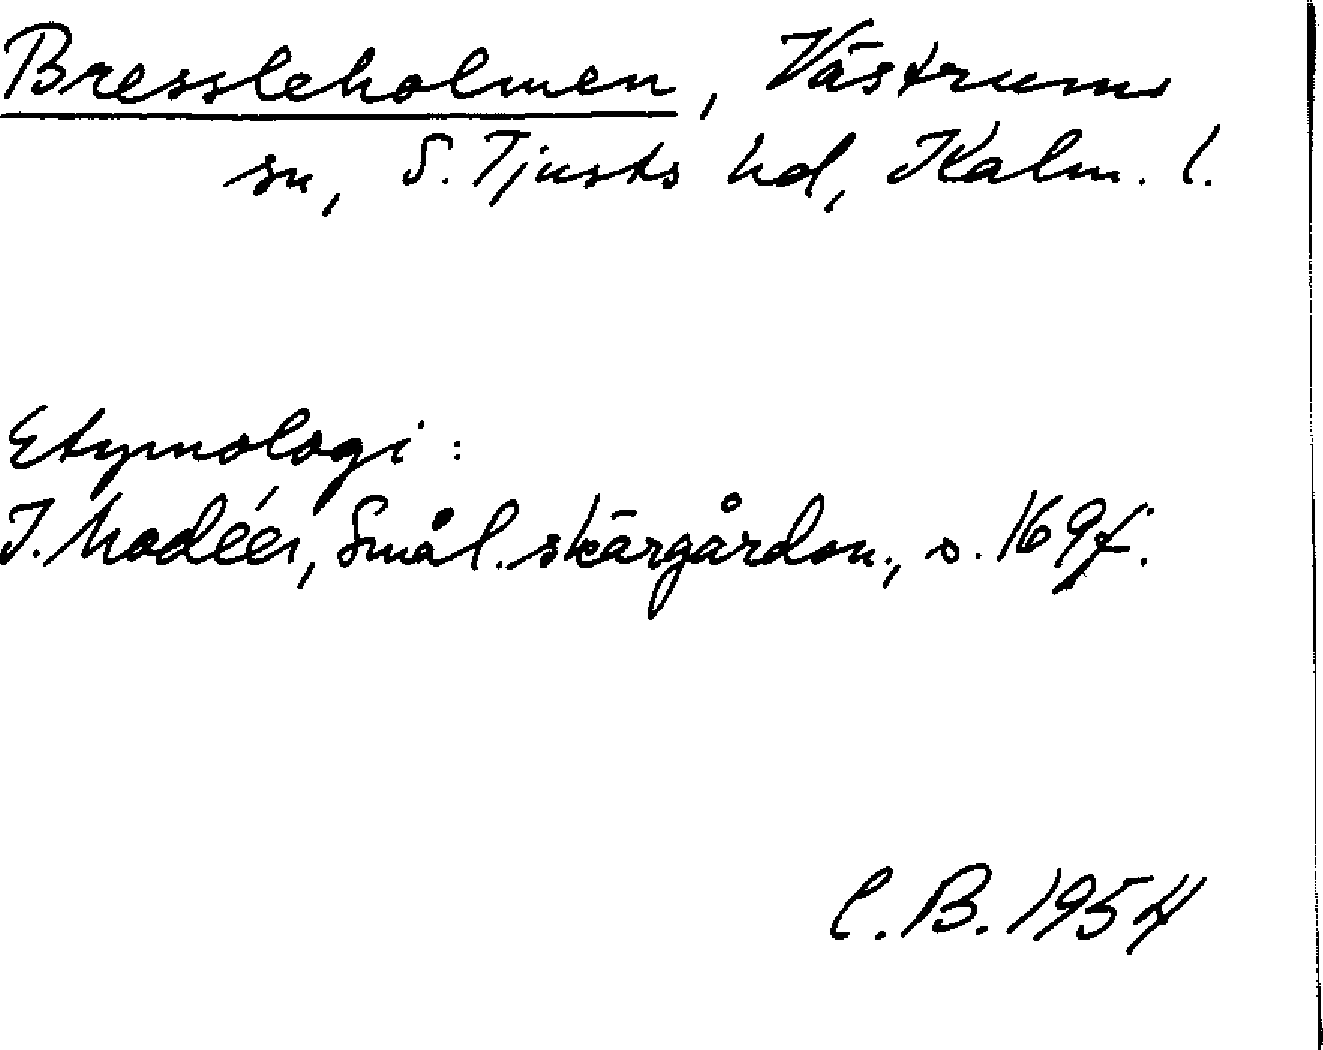 Bressleholmen, Västrums
sn, S. Tjusts hd, Kalm. l.
Etymologi:
I. Modéer, Smål. skärgårdsn., s. 169 f.
C. B. 1954